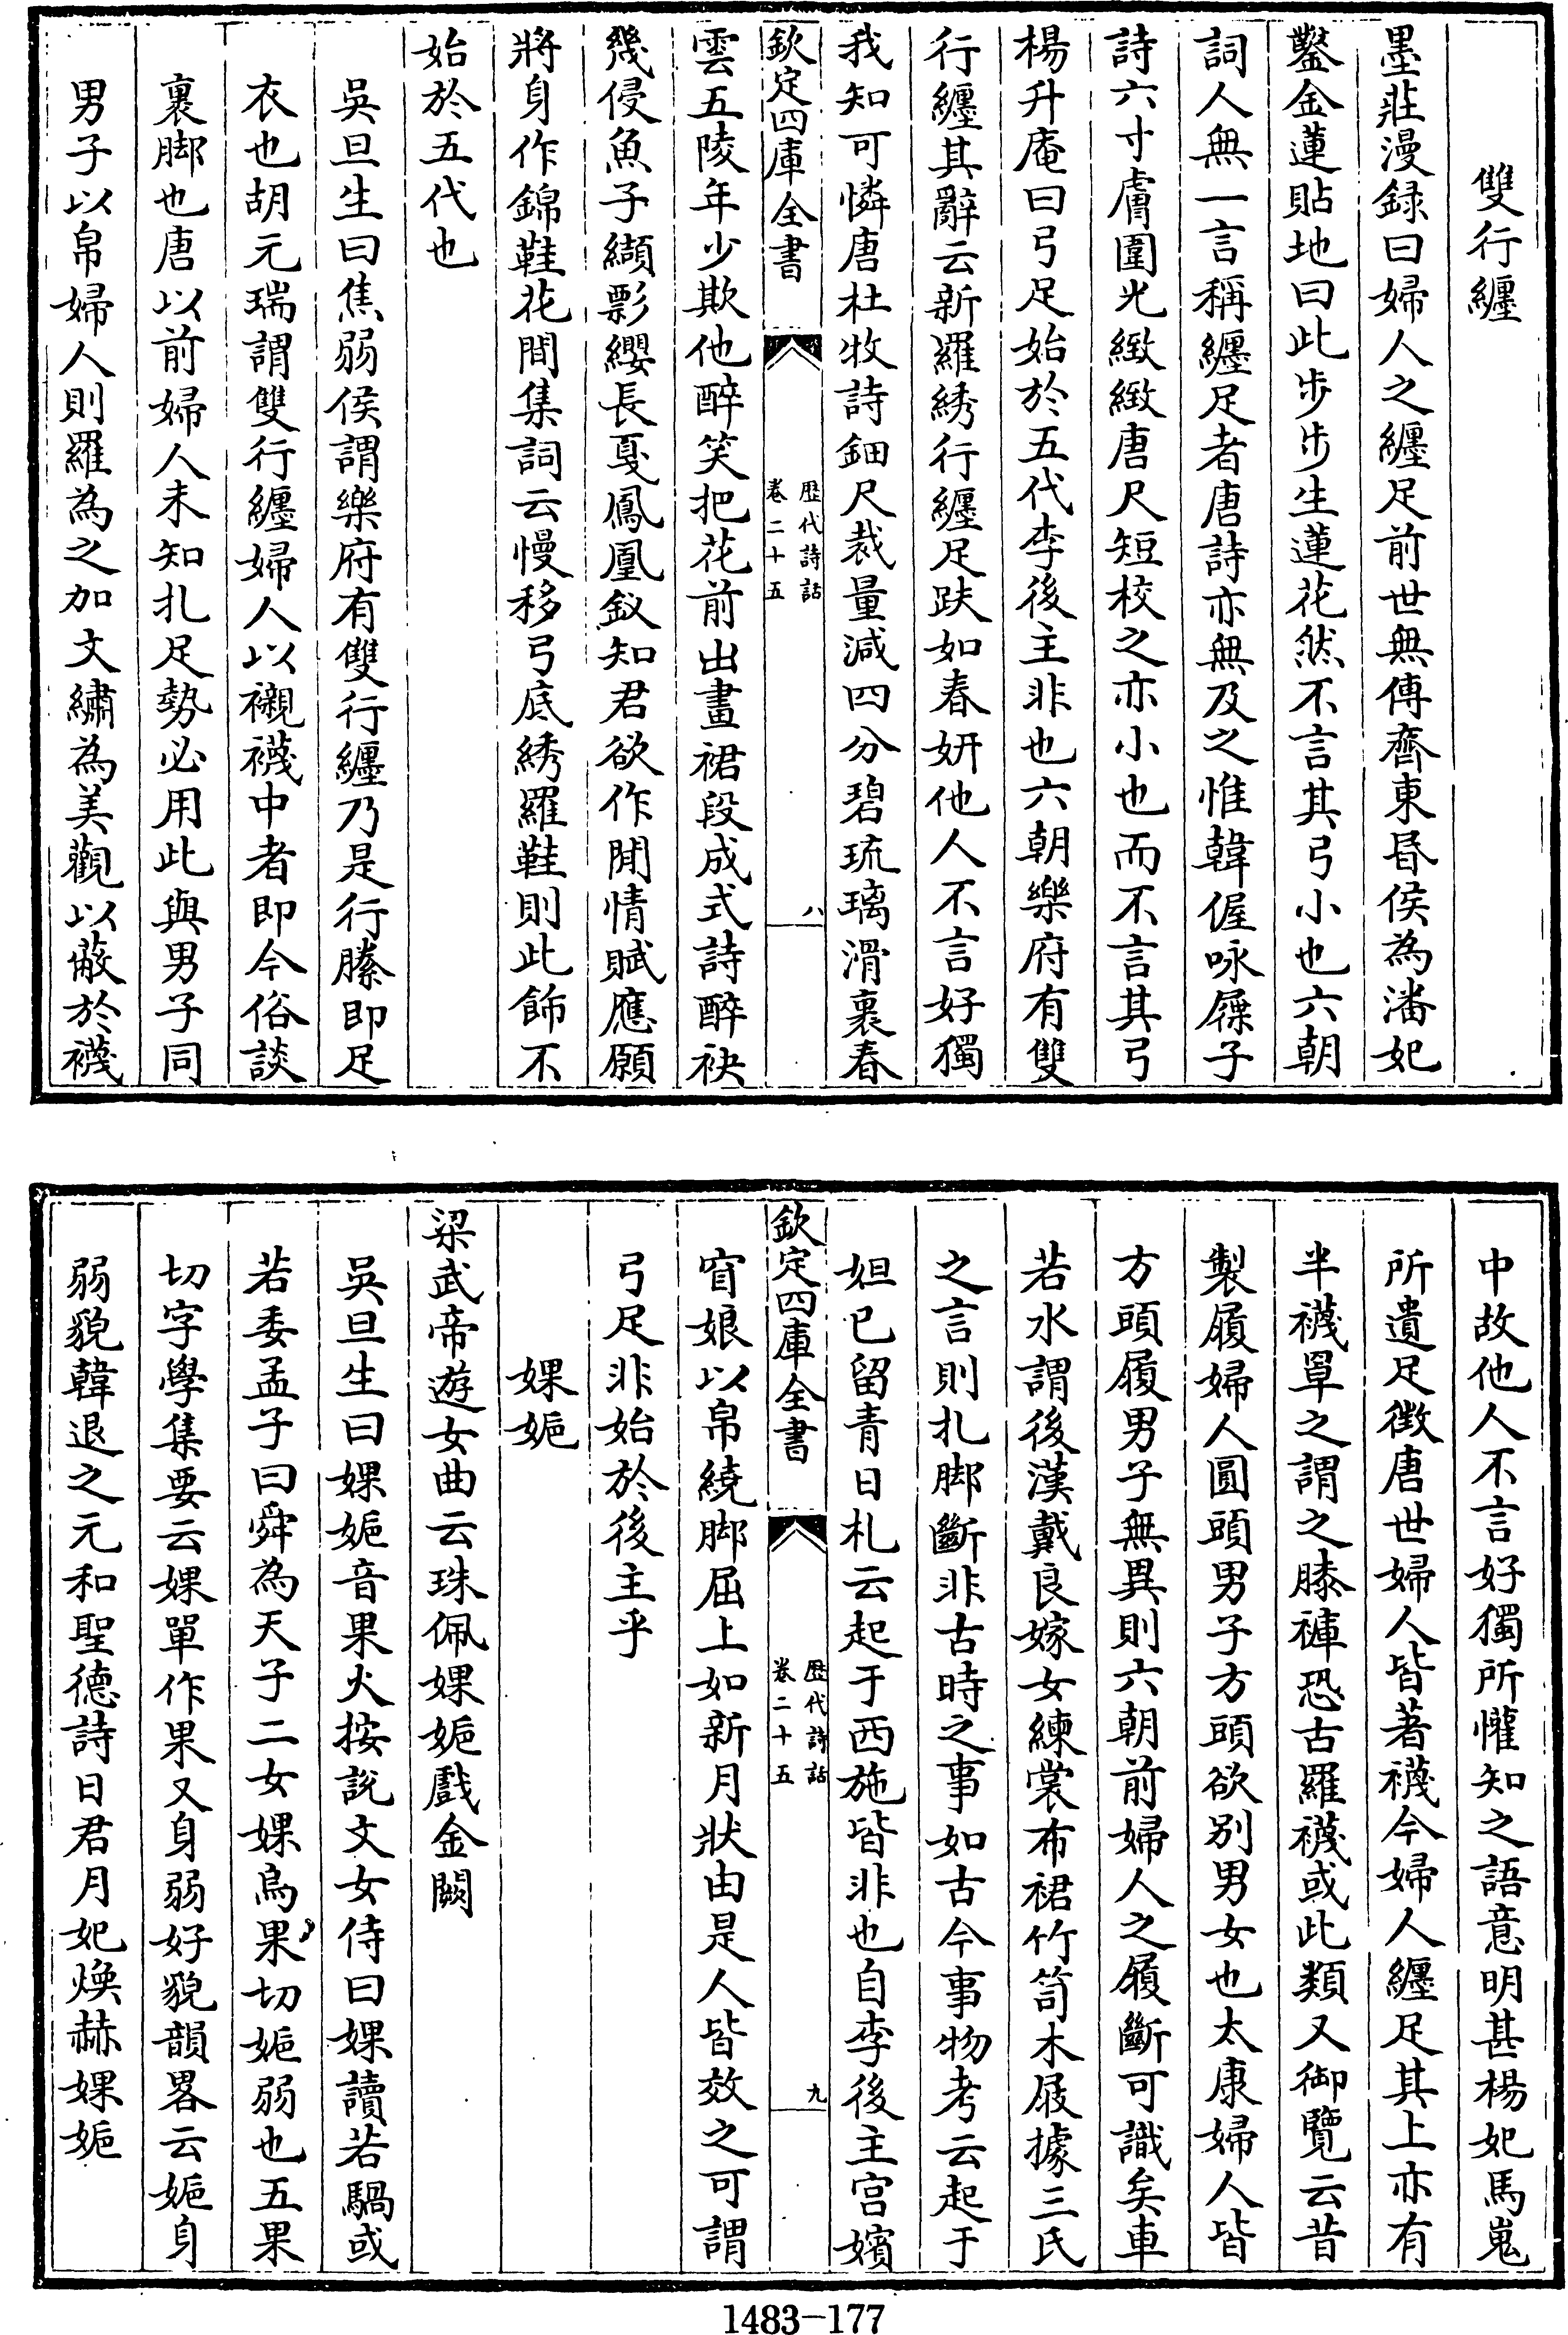 雙行纒
墨莊漫録曰婦人之纒足前世無傳齊東昏侯為潘妃
鑿金蓮貼地曰此步步生蓮花然不言其弓小也六朝
詞人無一言稱纒足者唐詩亦無及之惟韓偓咏屧子
詩六寸膚圍光緻緻唐尺短校之亦小也而不言其弓
楊升庵曰弓足始於五代李後主非也六朝樂府有雙
行纒其辭云新羅綉行纒足趺如春妍他人不言好獨
我知可憐唐杜牧詩鈿尺裁量減四分碧琉璃滑裹春
欽定四庫全書
歴代詩話
卷二十五
八
雲五陵年少欺他醉笑把花前出畫裙段成式詩醉袂
幾侵魚子纈彯纓長戞鳳凰釵知君欲作閒情賦應願
將身作錦鞋花間集詞云慢移弓底綉羅鞋則此飾不
始於五代也
吳旦生曰焦弱侯謂樂府有雙行纒乃是行縢即足
衣也胡元瑞謂雙行纒婦人以襯襪中者即今俗談
裹脚也唐以前婦人未知扎足勢必用此與男子同
男子以帛婦人則羅為之加文繡為美觀以蔽於襪
中故他人不言好獨所懽知之語意明甚楊妃馬嵬
所遺足徴唐世婦人皆著襪今婦人纒足其上亦有
半襪罩之謂之膝褲恐古羅襪或此類又御覽云昔
製履婦人圓頭男子方頭欲别男女也太康婦人皆
方頭履男子無異則六朝前婦人之履斷可識矣車
若水謂後漢戴良嫁女練裳布裙竹笥木屐據三氏
之言則扎脚斷非古時之事如古今事物考云起于
妲已留青日札云起于西施皆非也自李後主宫嬪
欽定四庫全書
歴代詩話
卷二十五
九
窅娘以帛繞脚屈上如新月狀由是人皆效之可謂
弓足非始於後主乎
婐㛂
梁武帝遊女曲云珠佩婐㛂戲金闕
吳旦生曰婐㛂音果火按説文女侍曰婐讀若騧或
若委孟子曰舜為天子二女婐烏果切㛂弱也五果
切字學集要云婐單作果又身弱好貌韻畧云㛂身
弱貌韓退之元和聖德詩日君月妃煥赫婐㛂
1483-177